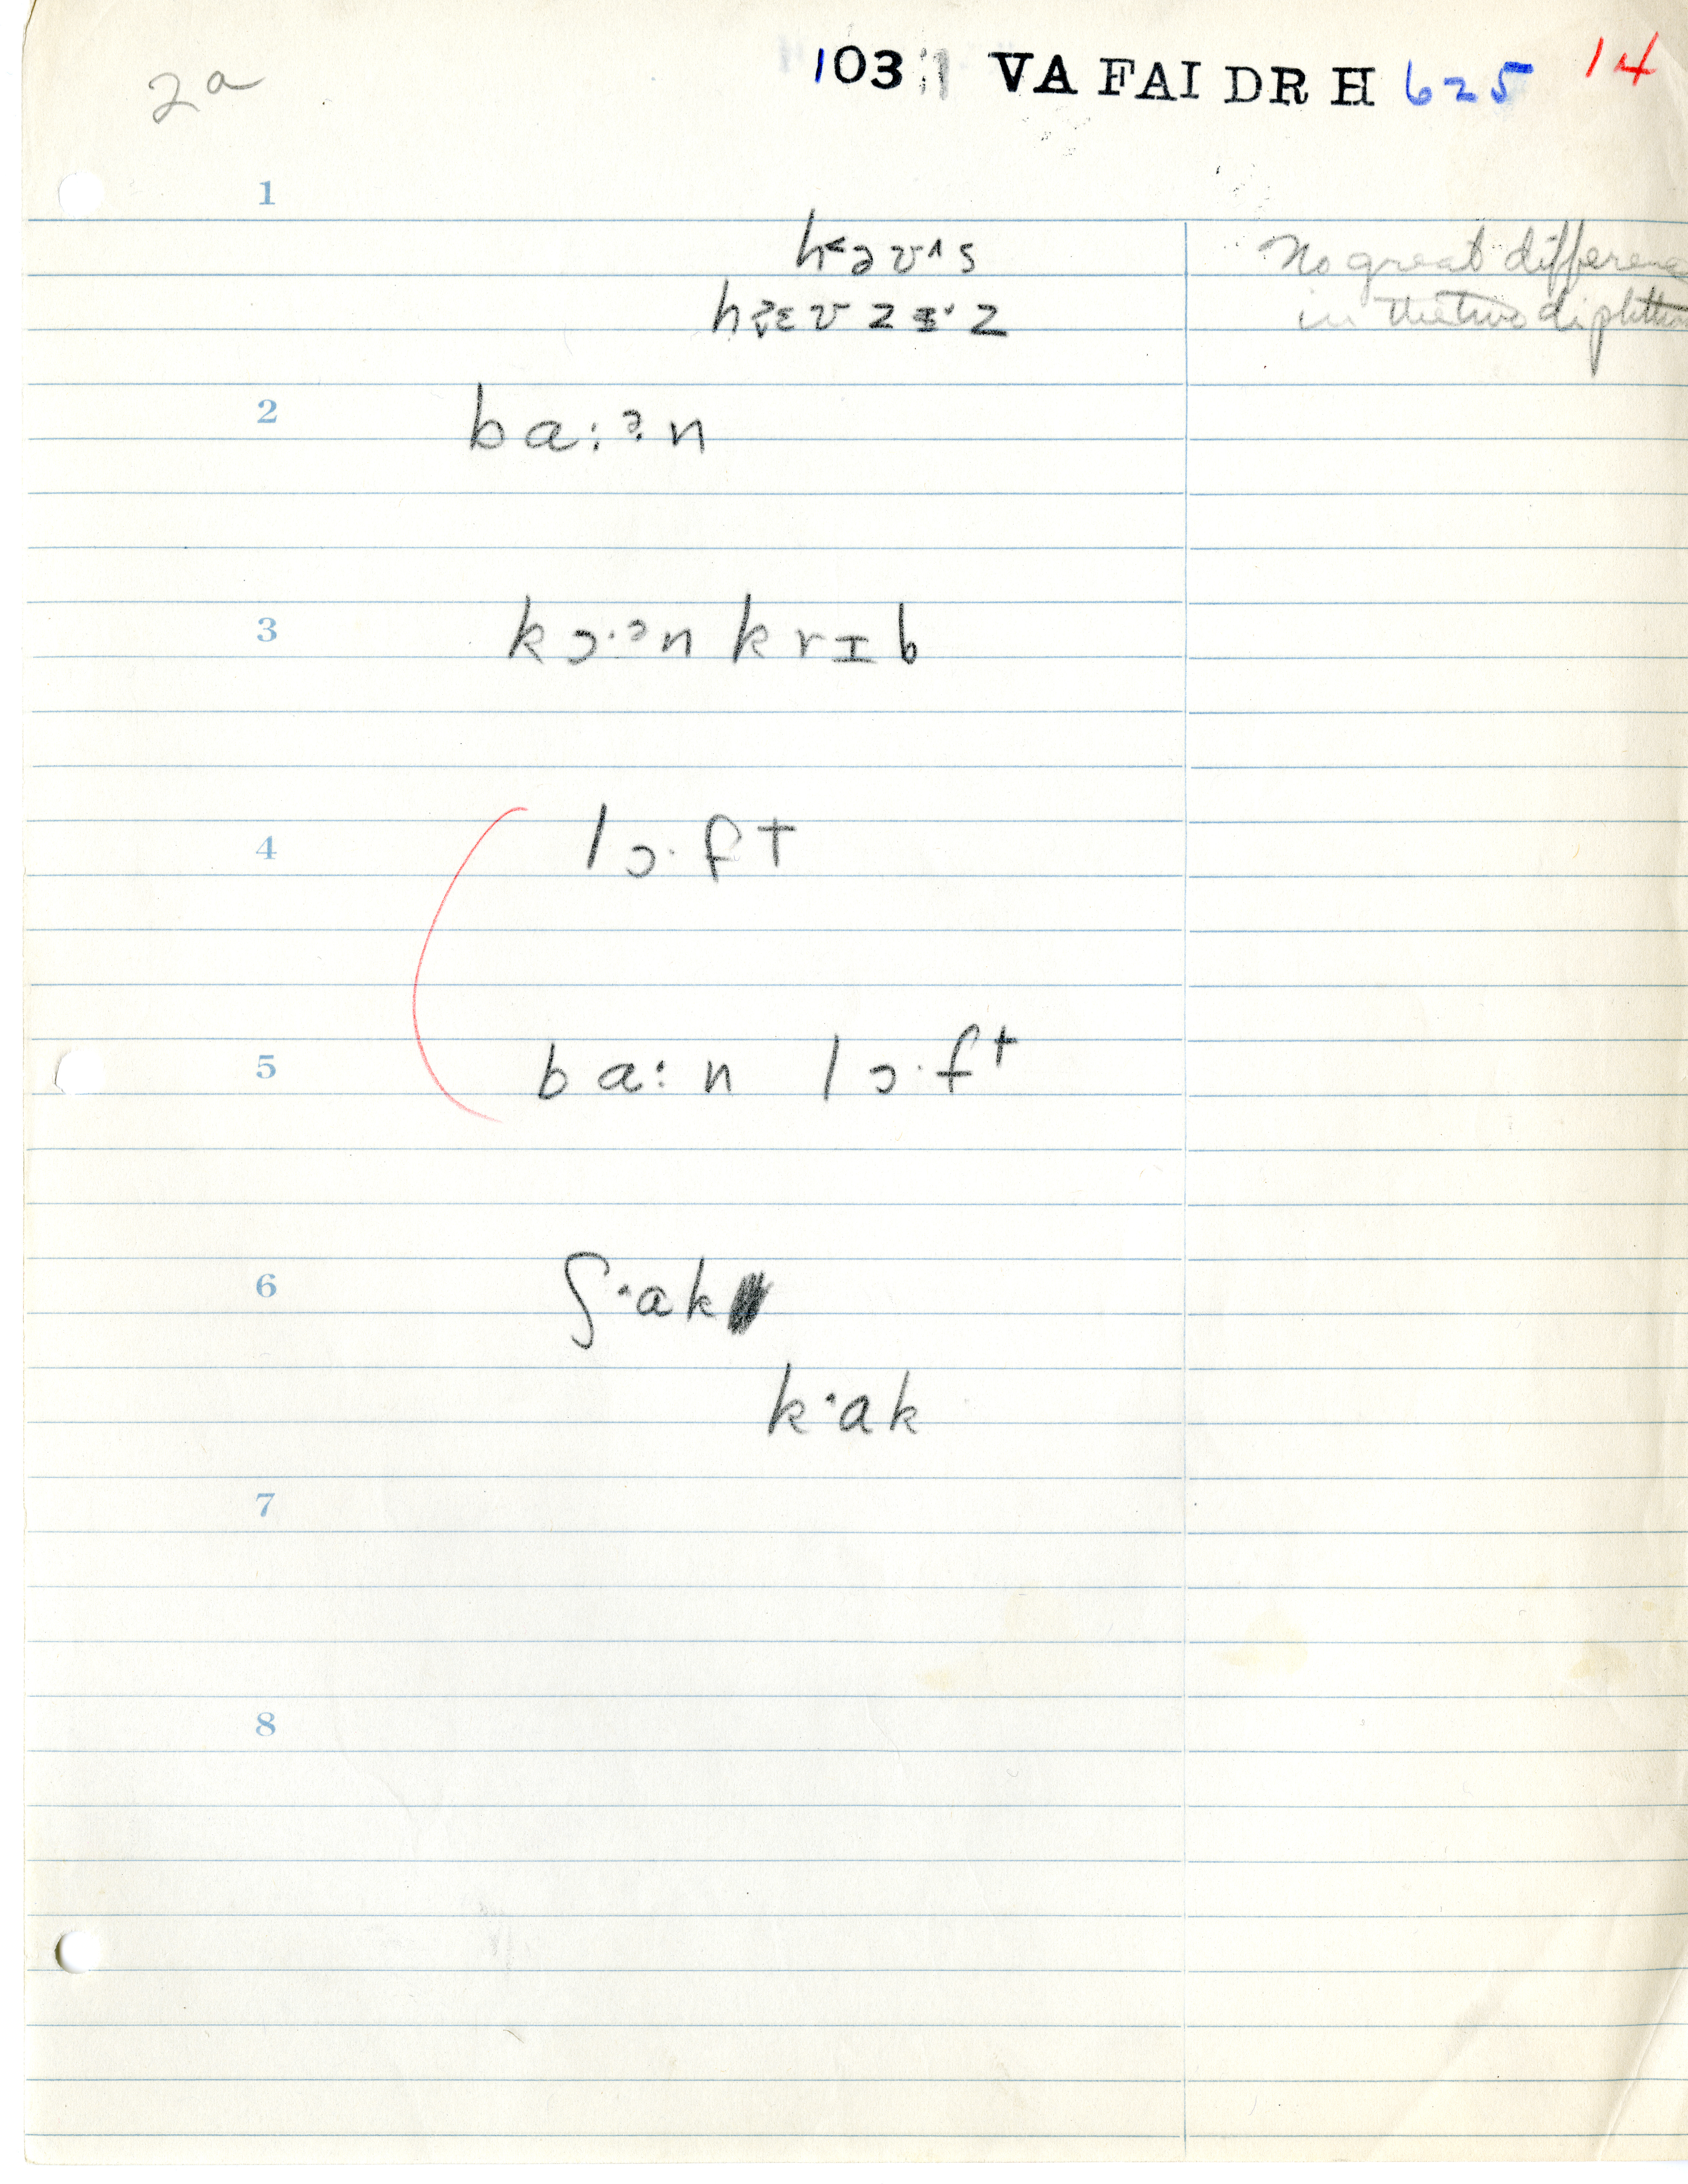 2a 103 VA FAI DR H 625 14
1
h<əʊ^s No great differenc
hɜɛʊzɪ·z in the two diphth
2 ba:ɜn
3 kɔ·ən krɪb
4 lɔ·ft
5 ba:n lɔ·ft
6 ʃ·ak
k·ak
7
8